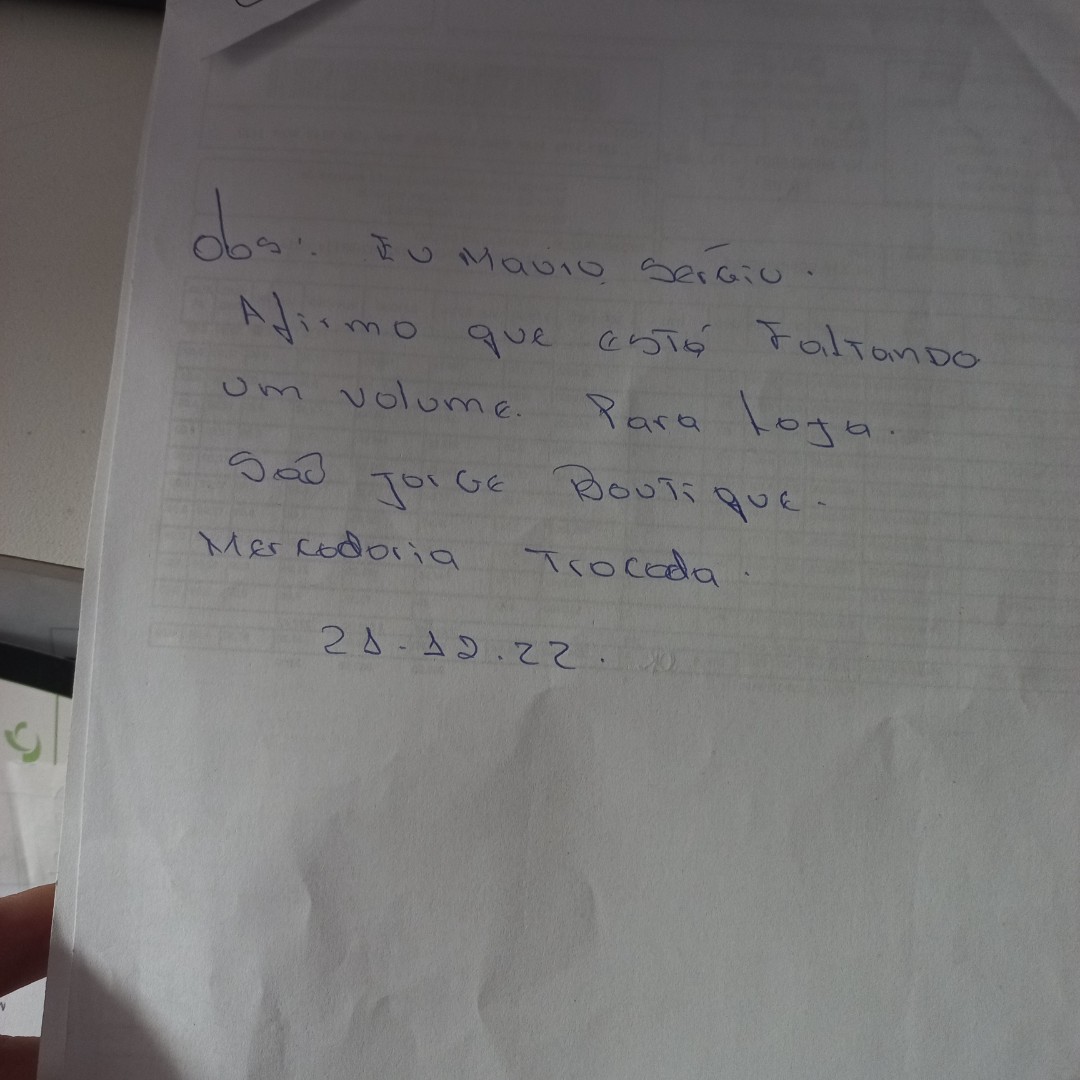 Obs: Eu Mauro Sérgio.
Afirmo que está Faltando
um volume. Para Loja.
São Jorge Boutique.
Mercadoria Trocada.
21.12.22.